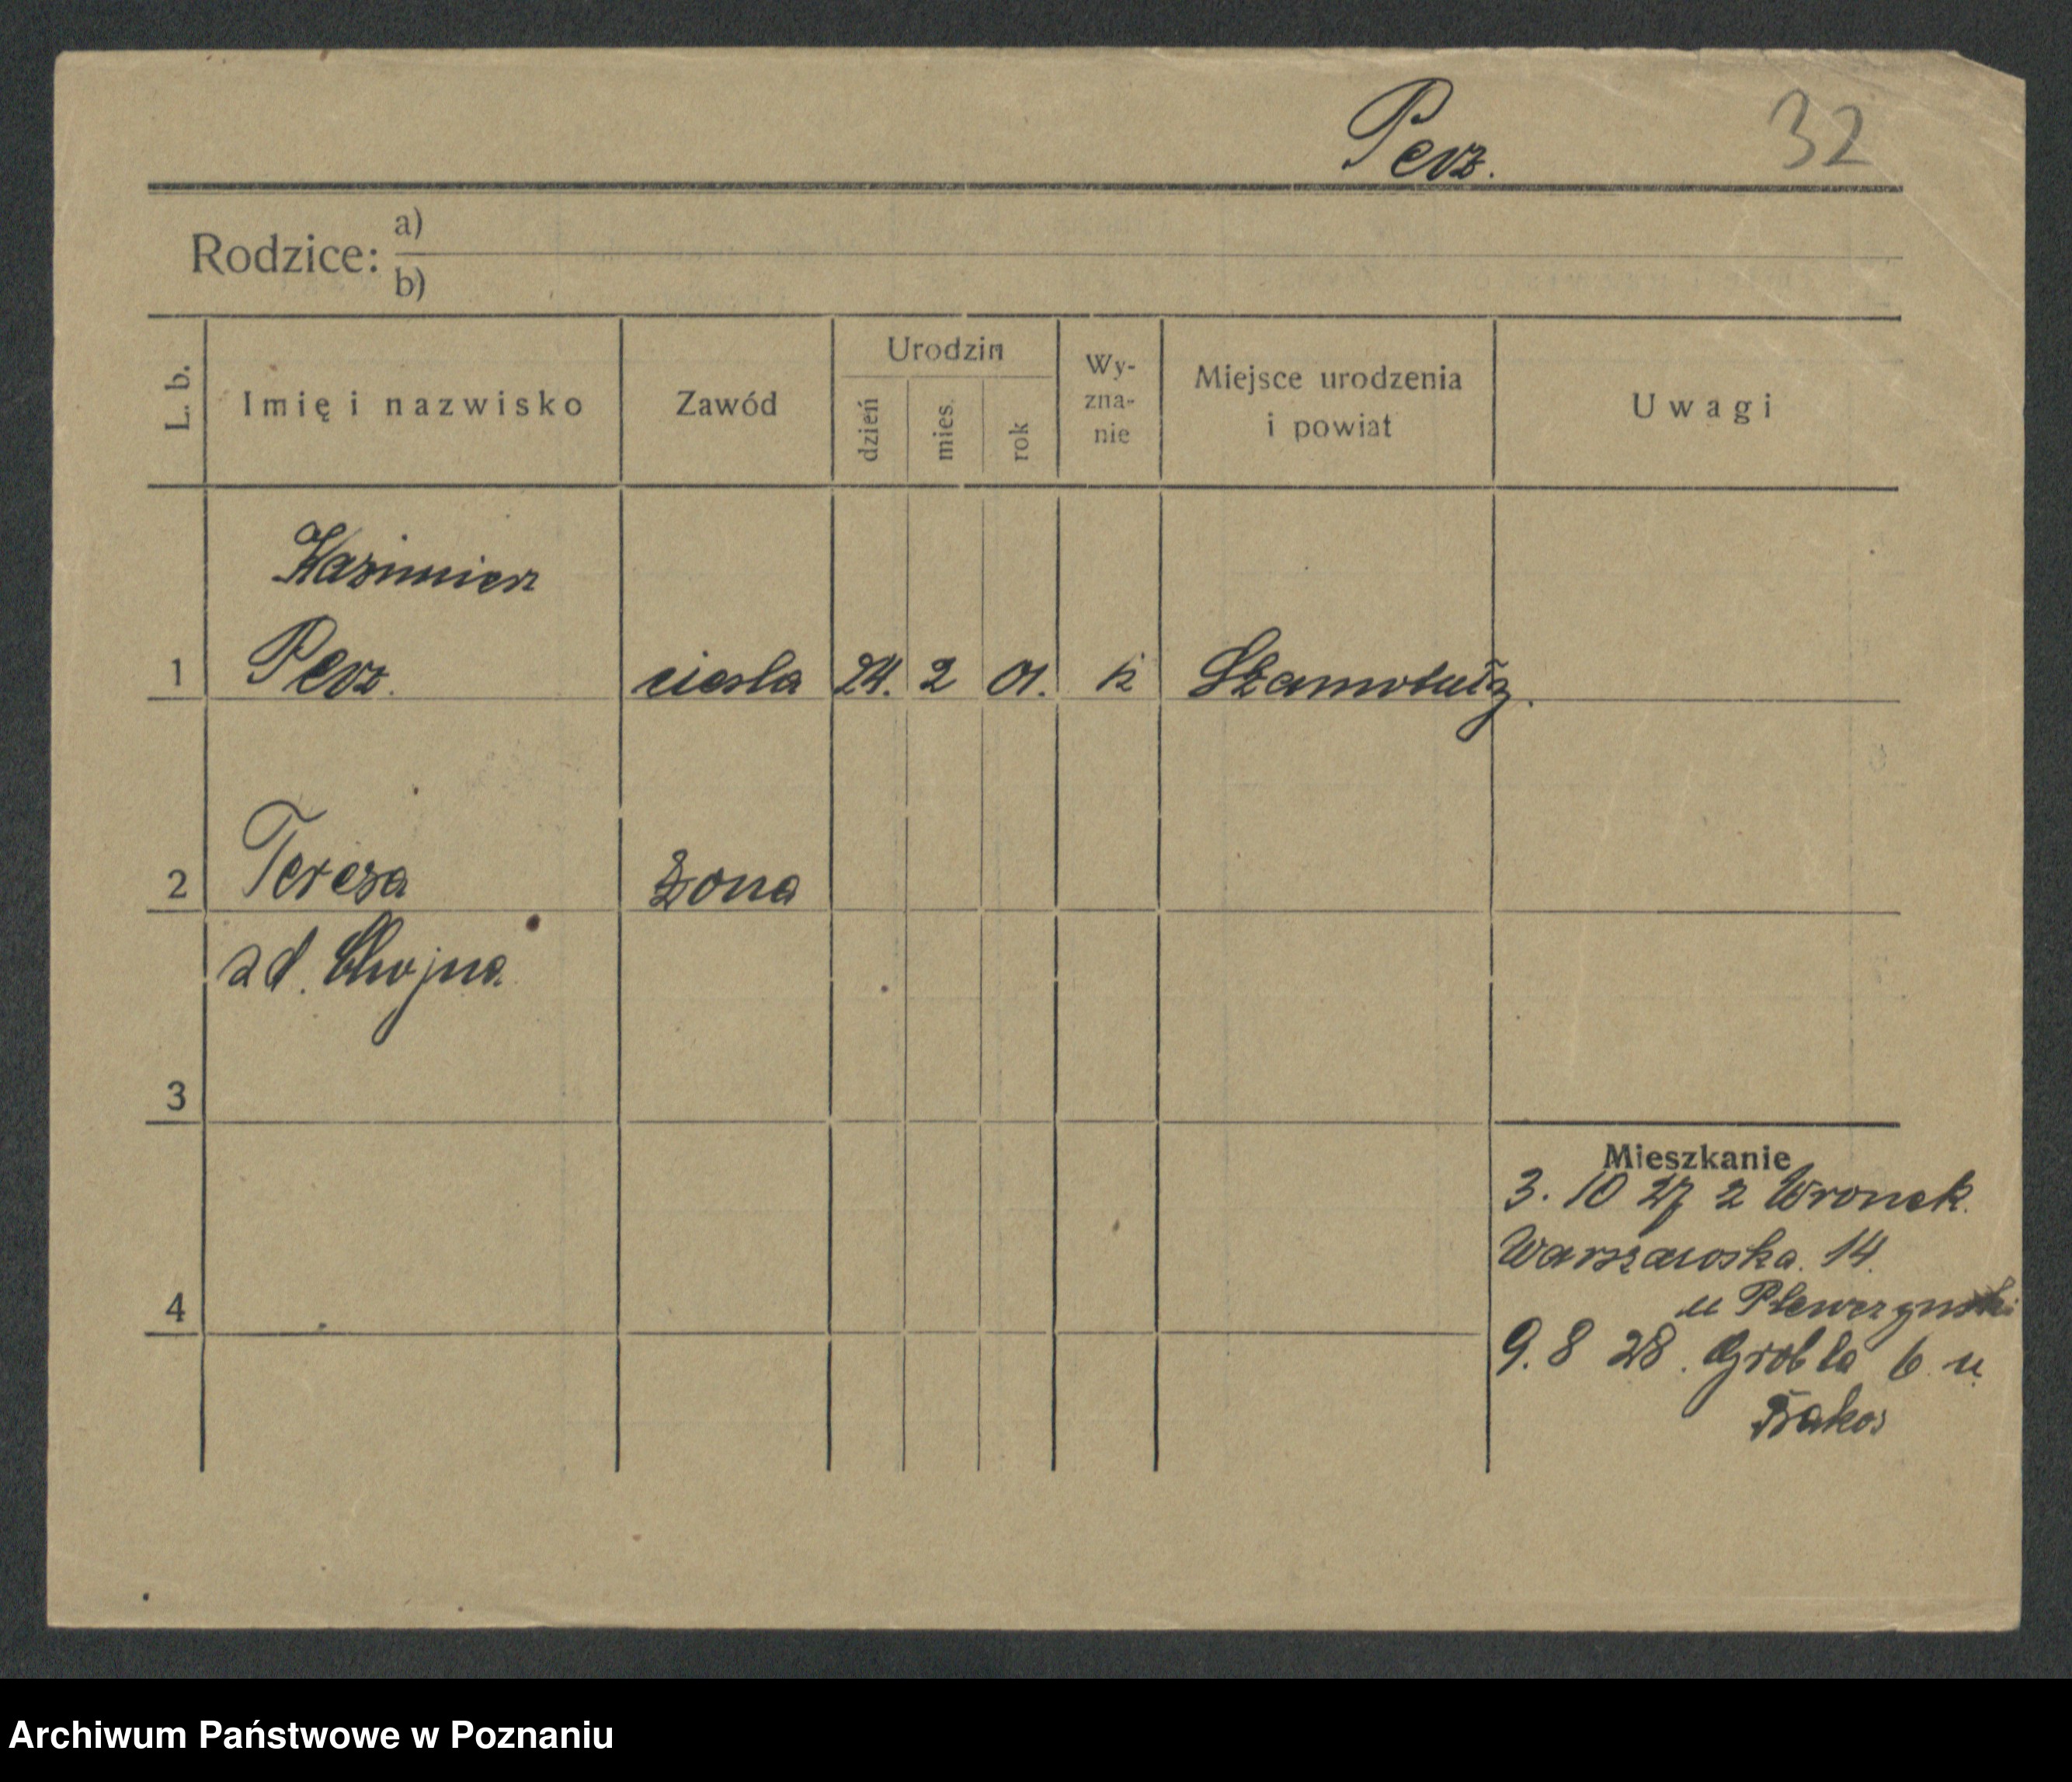 Perz.
32
Rodzice: a)
b)
L. b.
Imię i nazwisko
Zawód
Urodzin
dzień
mies.
rok
Wy-
zna-
nie
Miejsce urodzenia
i powiat
Uwagi
Kazimierz
1 Perz. ciesla 24. 2 01. k Szamotuły.
2 Teresa żona
zd. Chojna
3
4
Mieszkanie
3. 10 27 z Wronek.
Warszawska. 14.
u Plewczynski
9. 8 28. Grobla 6 u.
Archiwum Państwowe w Poznaniu